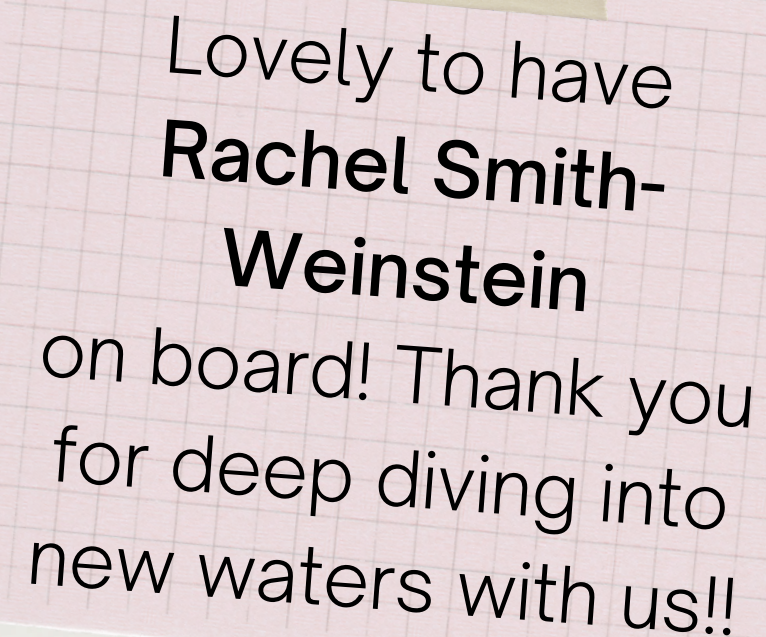 Lovely to have
Rachel Smith-
Weinstein
on board! Thank you
for deep diving into
new waters with us!!